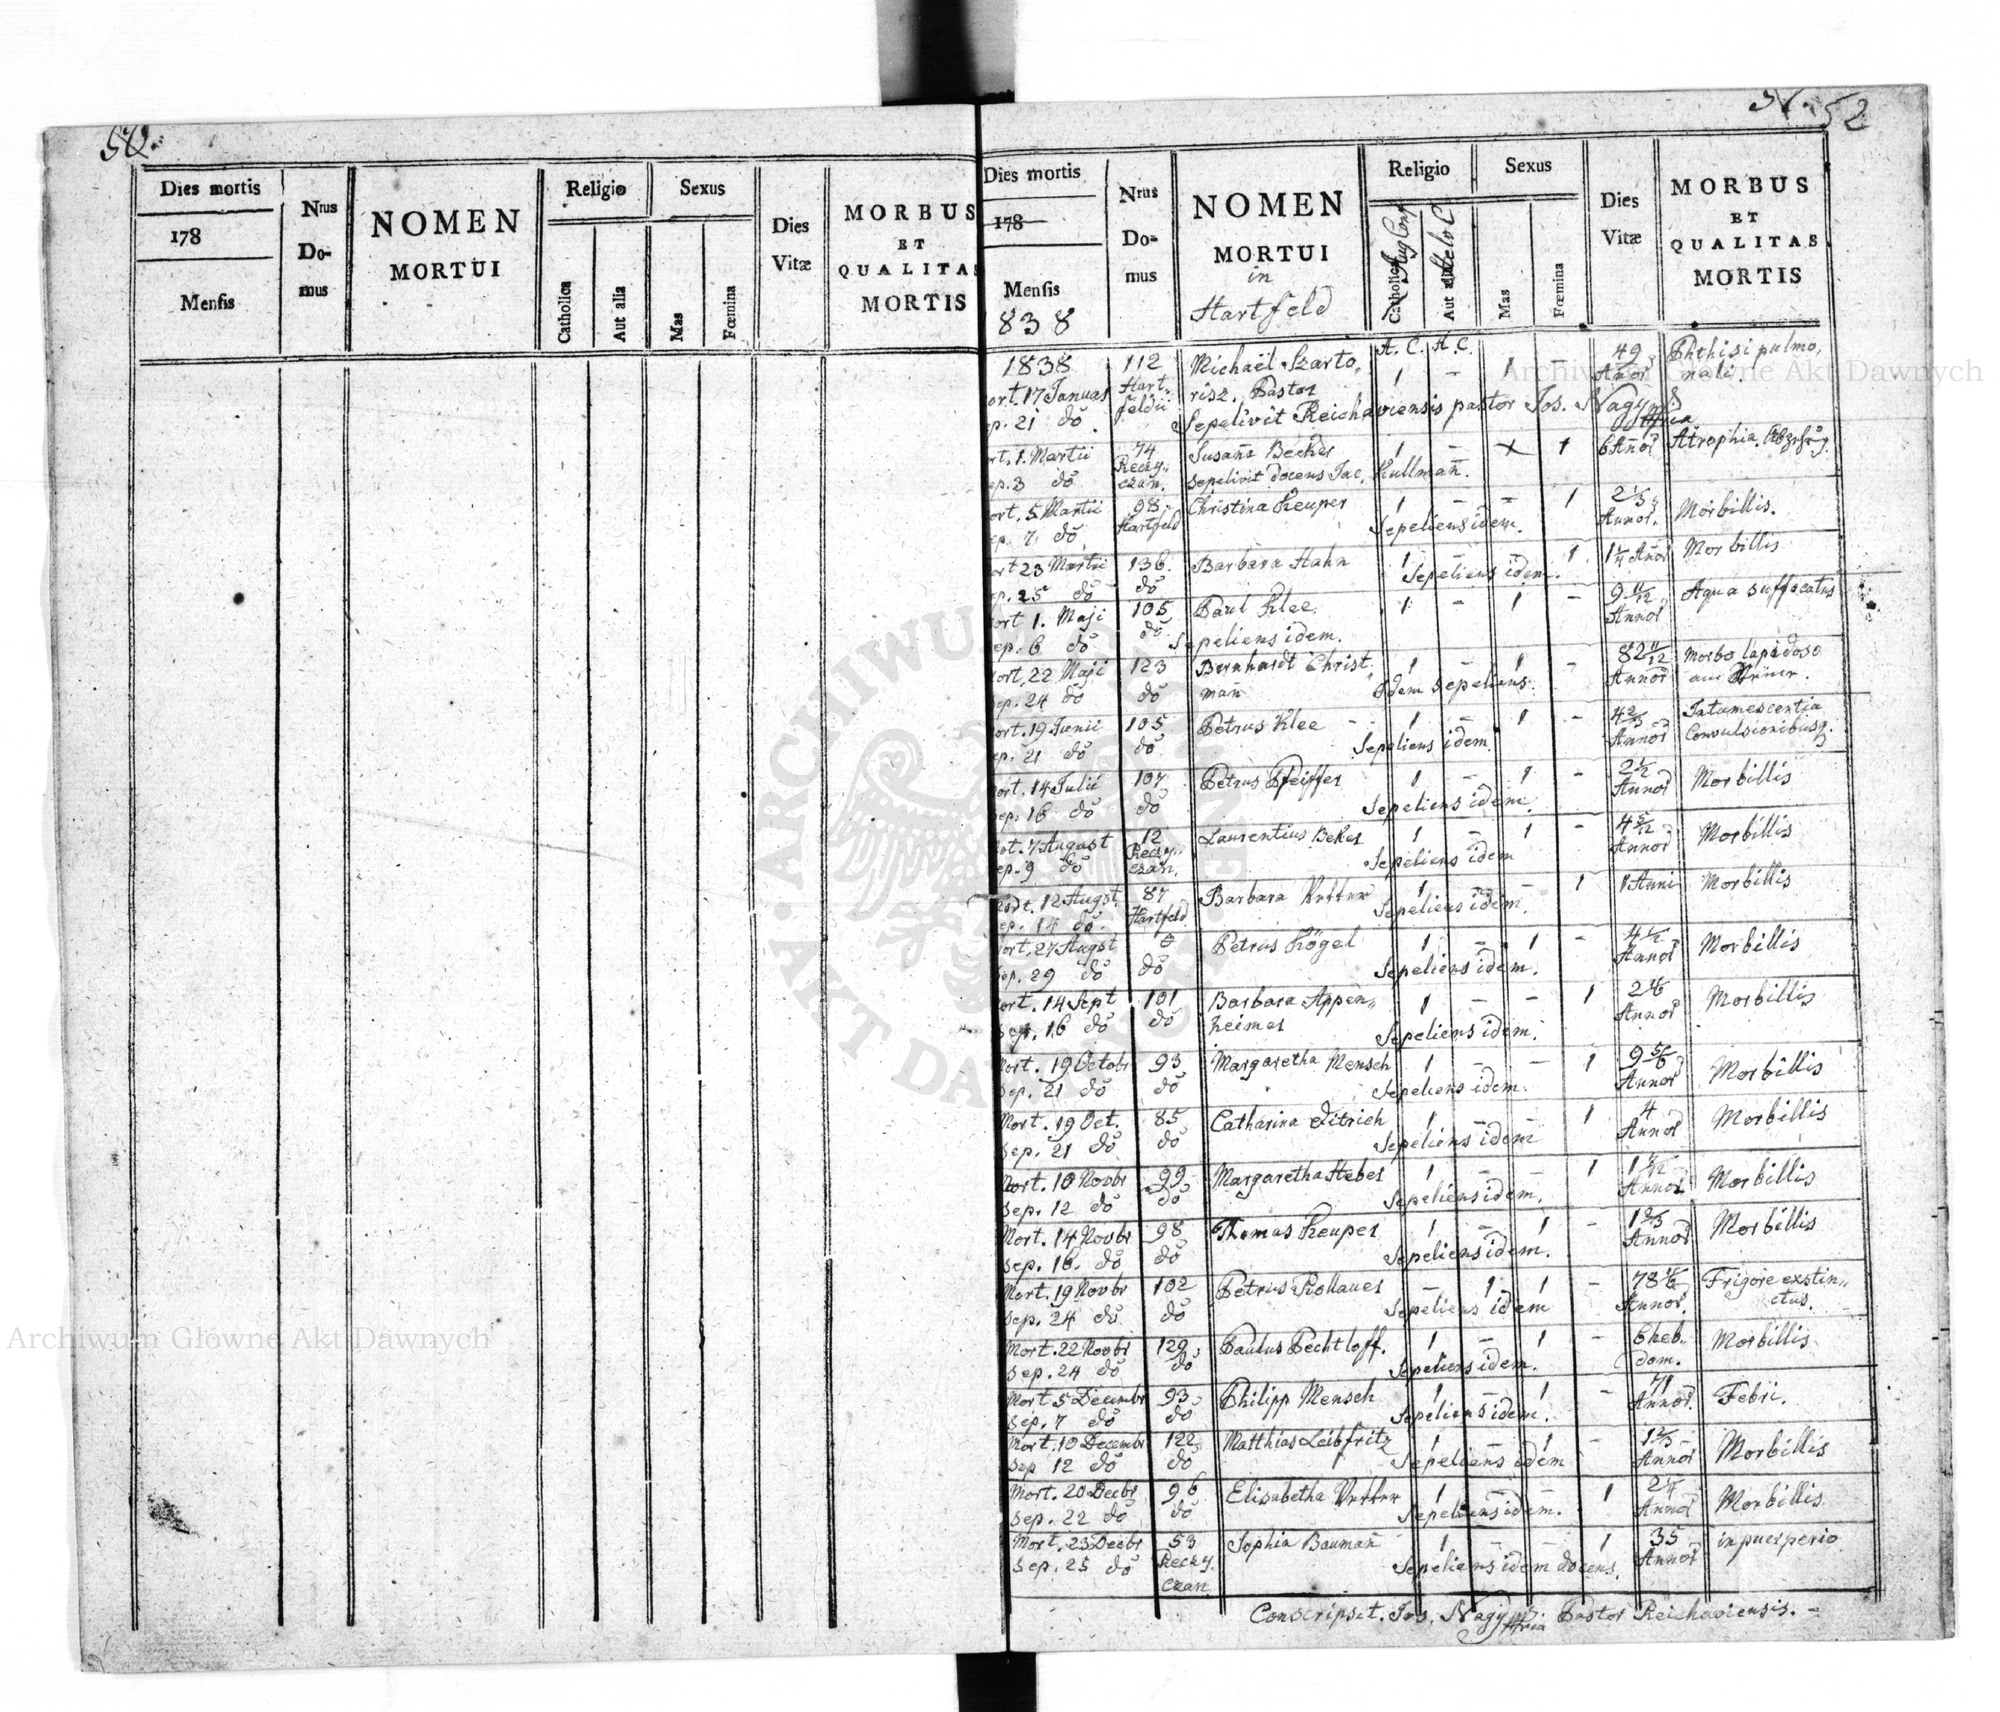 50.
Dies mortis
178
Mensis
Nrus
Do-
mus
NOMEN
MORTUI
Religio
Catholica
Aut alia
Sexus
Mas
Fœmina
Dies
Vitæ
MORBUS
ET
QUALITAS
MORTIS
52
Dies mortis
178
Mensis
838
Nrus
Do-
mus
NOMEN
MORTUI
in
Hartfeld
Religio
Catholica Aug Conf
Aut alia Helv C
Sexus
Mas
Fœmina
Dies
Vitæ
MORBUS
ET
QUALITAS
MORTIS
1838 112 Michaël Szarto, A. C. H. C. 49 Phthisi pulmo,
ort. 17 Januar Hart- risz. Pastor 1 - 1 - Annor nali.
ep. 21 do. feldii Sepelivit Reichaviensis pastor Jos. Nagy
ort. 1. Martii 74 Susaña Becker 1 - x 1 6 Añor Atrophia.
ep. 3 do Reczy- czan. sepelivit docens Jac. Kullmañ.
ort. 5 Martii 98. Christina Keuper 1 - - 1 2 1/3 Annor. Morbillis.
ep. 7. do Hartfeld Sepeliens idem.
ort 23 Martii 136. Barbara Hahn 1 - 1 1 1/4 Añor Morbillis
ep. 25 do do Sepeliens idem.
ort 1. Maji 105 Paul Klee 1 - 1 - 9 11/12 Annor Aqua suffocatus
ep. 6 do do Sepeliens idem.
ort. 22 Maji 123 Bernhardt Christ- 1 - 1 - 82 11/12 Morbo lapidoso
ep. 24 do do mañ Idem sepeliens. Annor
ort. 19 Junii 105 Petrus Klee - - 1 - 1 - 4 2/3 Intumescentia
ep. 21 do do Sepeliens idem Annor Convulsionibusq.
ort. 14 Julii 107 Petrus Pfeiffer 1 - 1 - 2 1/2 Annor Morbillis
ep. 16 do do Sepeliens idem.
ort. 7 August 12 Laurentius Beker 1 - 1 - 4 5/12 Annor Morbillis
ep. 9 do Reczy- czan. Sepeliens idem
ort. 12 Augst. 87 Barbara Vetter 1 - - 1 1 Anni Morbillis
ep. 14 do. Hartfeld Sepeliens idem.
ort. 27 Augst Petrus Kögel 1 - 1 - 4 1/2 Annor Morbillis
ep. 29 do do Sepeliens idem.
ort. 14 Sept 101 Barbara Appen- 1 - - 1 2 1/6 Annor Morbillis
Sep. 16 do do heimer Sepeliens idem.
Mort. 19 Octobr 93 Margaretha Mensch 1 - - 1 9 5/6 Annor Morbillis
Sep. 21 do do Sepeliens idem.
Mort. 19 Oct. 85 Catharina Ditrich 1 - - 1 4 Annor Morbillis
Sep. 21 do do Sepeliens idem
Mort. 10 Novbr 99 Margaretha Steber 1 - - 1 Annor Morbillis
Sep. 12 do do Sepeliens idem.
Mort. 14 Novbr 98 Thomas Keuper 1 - 1 - 1 2/3 Annor Morbillis
Sep. 16. do do Sepeliens idem.
Mort. 19 Novbr 102 Petrus Kollauer - 1 1 - 78 1/6 Frigore exstin-
Sep. 24 do. do Sepeliens idem Annor. ctus.
Mort. 22 Novbr 129 Paulus Pechtloff. 1 - 1 - 6 heb- Morbillis
Sep. 24 do do Sepeliens idem. dom.
Mort 5 Decembr 93 Philipp Mensch 1 - 1 - 71 Annor. Febri.
Sep. 7 do do Sepeliens idem.
Mort. 10 Decembr 122 Matthias Leibfritz 1 - 1 - 1 2/3 Annor Morbillis
Sep 12 do do Sepeliens idem
Mort. 20 Decbr 96 Elisabetha Vetter 1 - - 1 2 1/4 Annor Morbillis
Sep. 22 do do Sepeliens idem.
Mort. 23 Decbr 53 Sophia Baumañ 1 - - 1 35 in puerperio
Sep. 25 do Reczy. czan Sepeliens idem docens. Annor
Conscripset. Jos. Nagy Pastor Reichaviensis.
Archiwum Główne Akt Dawnych
Archiwum Główne Akt Dawnych
ARCHIWUM GŁÓWNE
AKT DAWNYCH